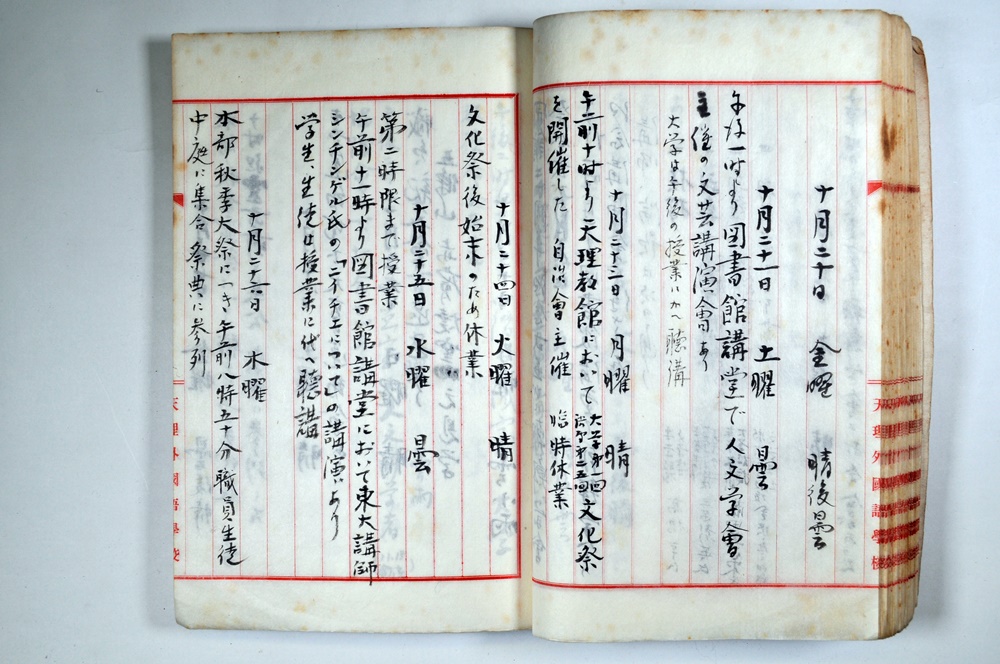 十月二十日 金曜 晴後曇
十月二十一日 土曜 曇
午后一時より図書館講堂で人文学會
主催の文芸講演會あり
大学は午後の授業にかへ聴講
十月二十三日 月曜 晴
午前十時より天理教館において 大学第一回 語学第二五回 文化祭
を開催した 自治會主催 臨時休業
天理外國語學校
十月二十四日 火曜 晴
文化祭後始末のため休業
十月二十五日 水曜 曇
第二時限まで授業
午前十一時より図書館講堂において東大講師
シンチンゲル氏の「ニイチエについて」の講演あり
学生、生徒は授業に代へ聴講
十月二十六日 木曜
本部秋季大祭につき午前八時五十分職員生徒
中庭に集合 祭典に参列
天理外國語學校